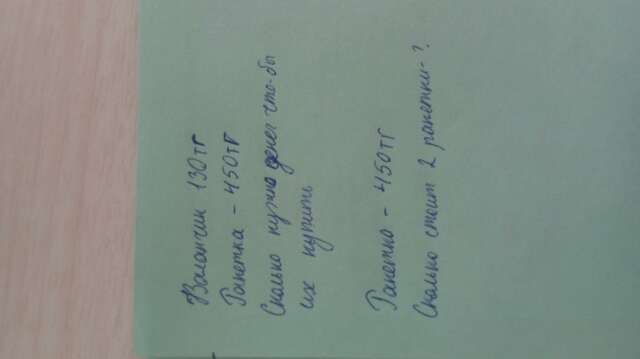 Волансин 130тг
Ракетка - 450тг
Сколько нужно денег что-бы
их купить
Ракетка - 450тг
Сколько стоит 2 ракетки-?